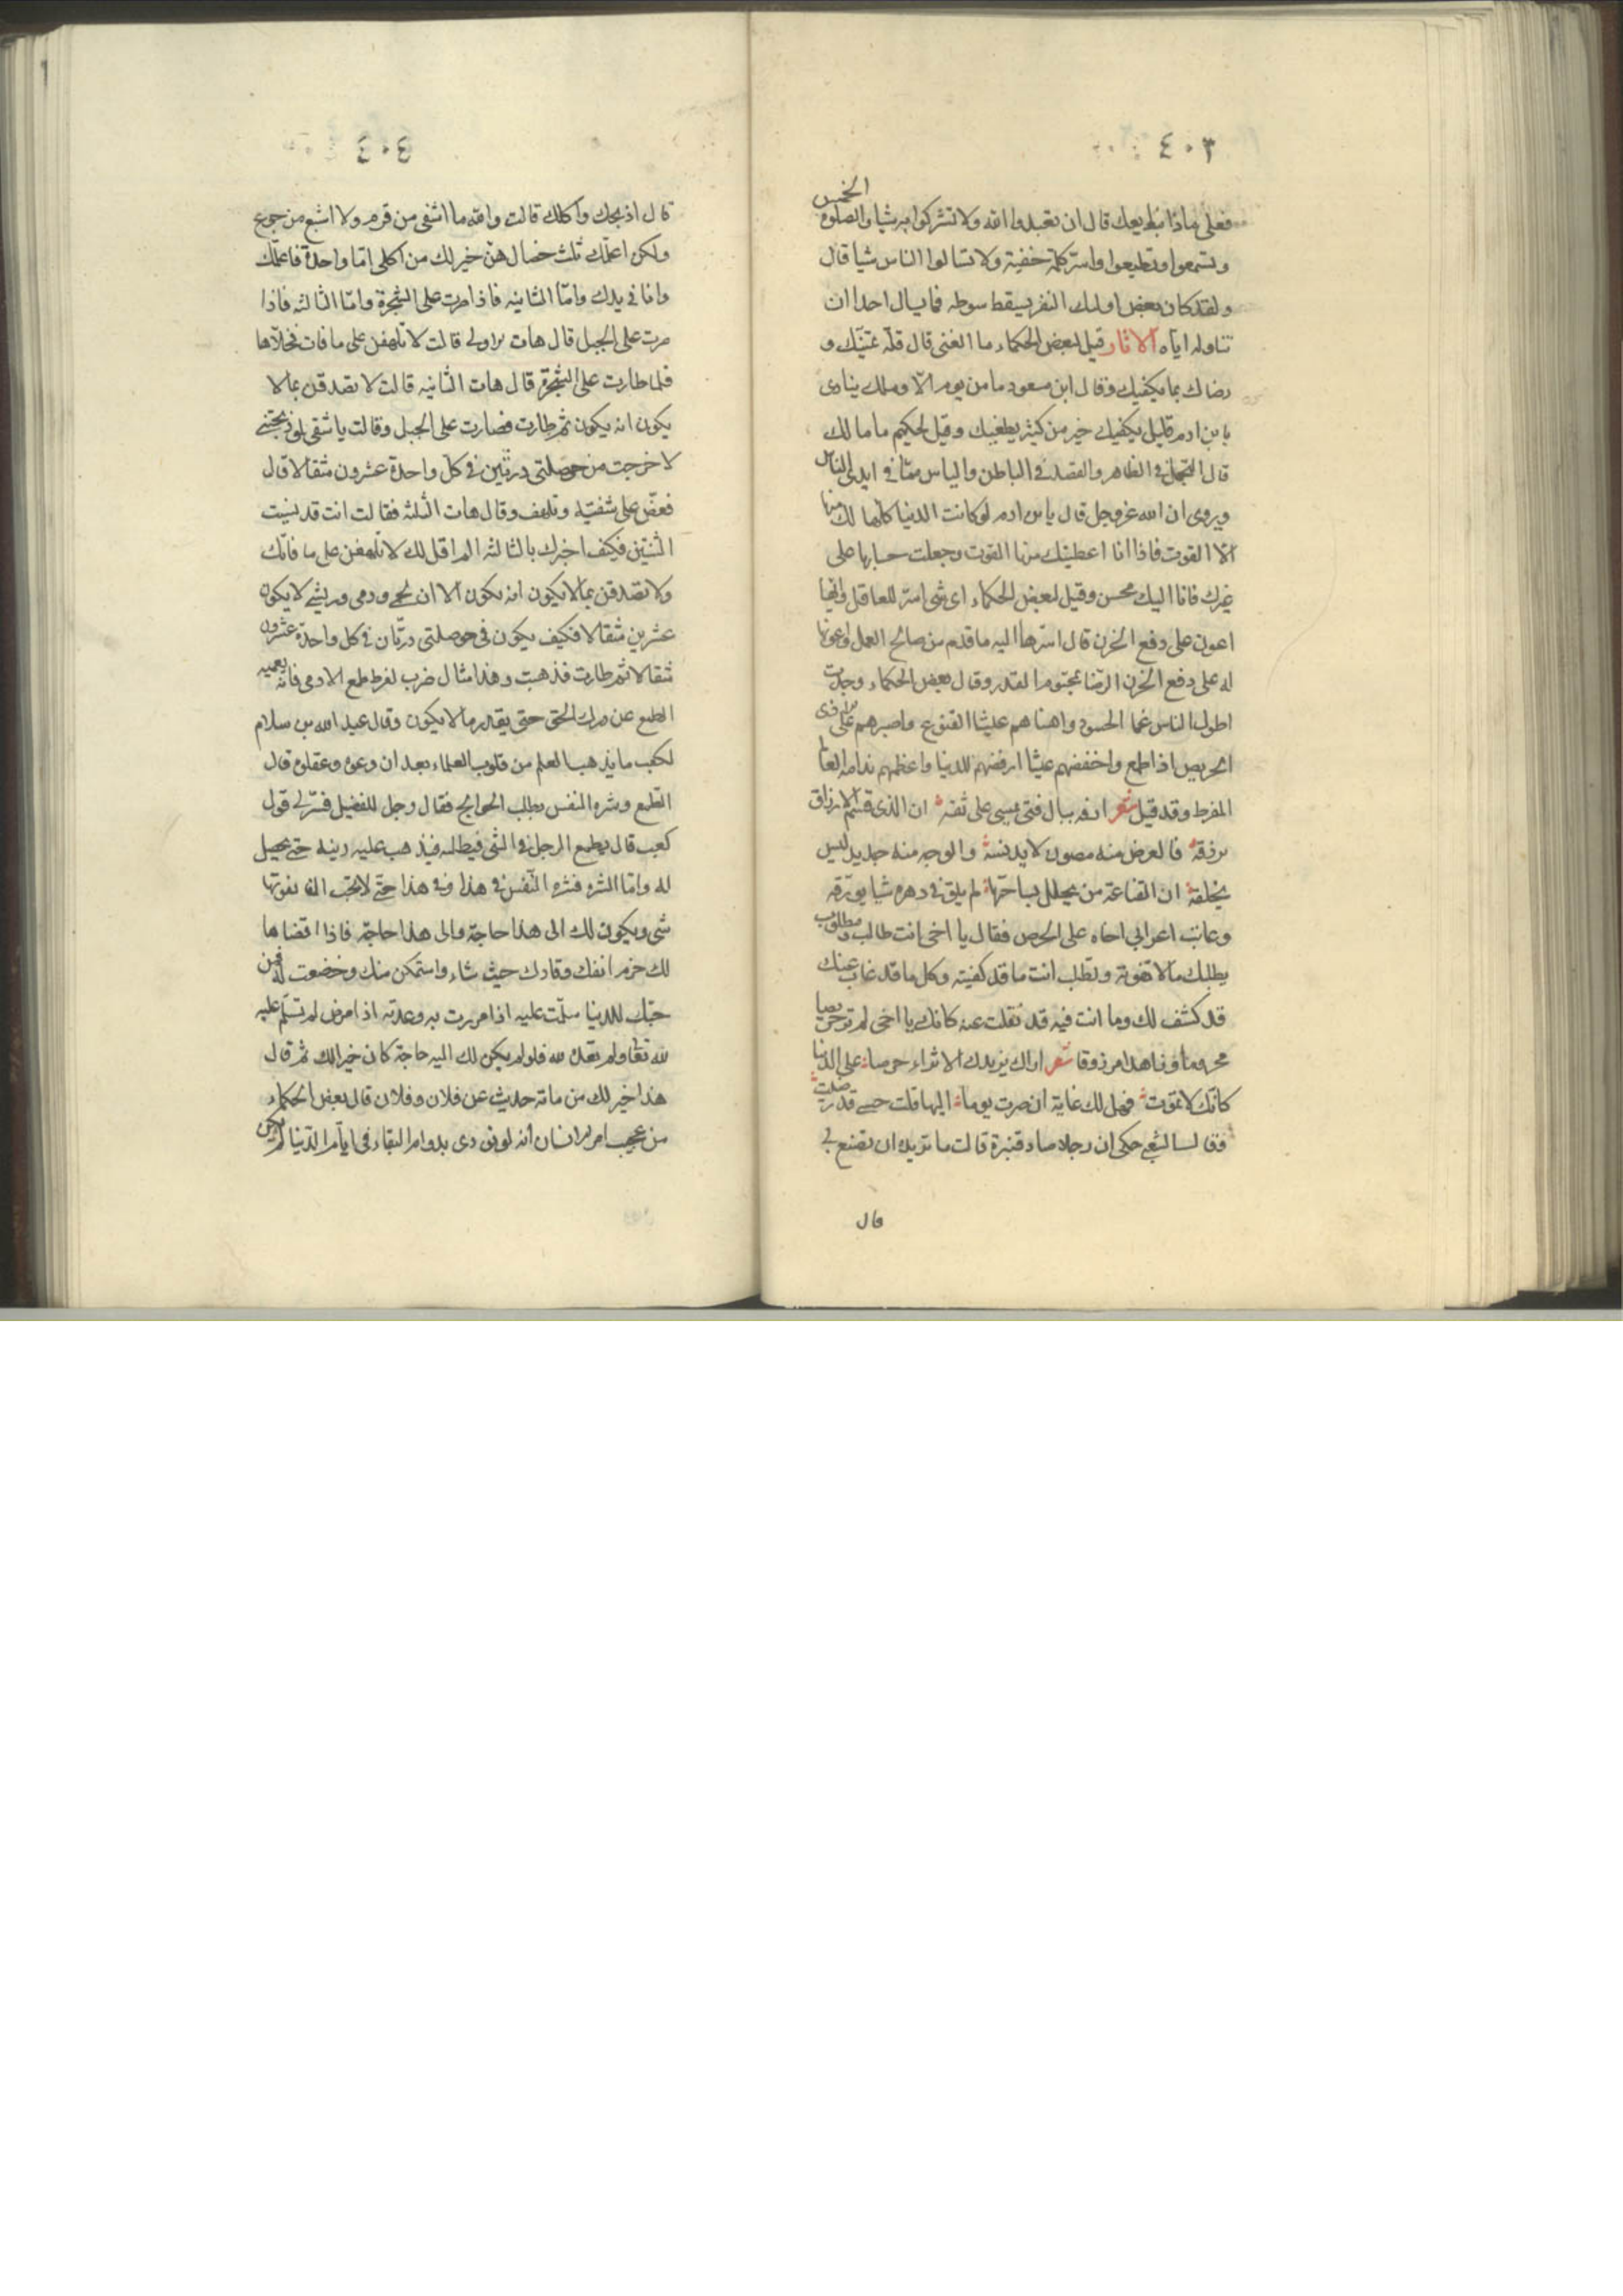 ٤٠٣
فعلى ماذا نبايعك قال ان تعبدوا الله ولا تشركوا به شيا والصلوة الخمس
وتسمعوا وتطيعوا واسر كلمة خفية ولا تسالوا الناس شيا قال
ولقد كان بعض اولئك النفر يسقط سوطه فما يسال احدا ان
يناوله اياه الاثار قيل لبعض الحكماء ما الغنى قال قلة تمنيك و
رضاك بما يكفيك وقال ابن مسعود ما من يوم الا وملك ينادى
يا بن ادم قليل يكفيك خير من كثير يطغيك وقيل لحكيم ما مالك
قال التجمل فى الظاهر والقصد فى الباطن والياس مما فى ايدى الناس
ويروى ان الله عز وجل قال يا بن ادم لو كانت الدنيا كلها لك منها
الا القوت فاذا انا اعطيتك منها القوت وجعلت حسابها على
غيرك فانا اليك محسن وقيل لبعض الحكماء اى شى اسر للعاقل وايها
اعون على دفع الحزن قال اسرها اليه ما قدم من صالح العمل واعونها
له على دفع الحزن الرضا بمحتوم القدر وقال بعض الحكماء وجدت
اطول الناس غما الحسود واهناهم عيشا القنوع واصبرهم على الاذى
الحريص اذا طمع واخفضهم عيشا ارفضهم للدنيا واعظمهم ندامة العالم
المفرط وقد قيل شعر ارفه ببال فتى يمسى على ثقة ان الذى قسم الارزاق
يرزقه فالعرض منه مصون لا يدنسه والوجه منه جديد ليس
يخلقه ان القناعة من يحلل بساحتها لم يلق فى دهره شيا يورقه
وعاتب اعرابي اخاه على الحرص فقال يا اخى انت طالب ومطلوب
يطلبك ما لا تفوته وتطلب انت ما قد كفيته وكل ما قد غاب عنك
قد كشف لك وما انت فيه قد نقلت عنه كانك يا اخى لم تر حريصا
محروما وزاهدا مرزوقا شعر اراك يزيدك الاثراء حرصا على الدنيا
كانك لا تموت فهل لك غاية ان صرت يوما اليها قلت حسبي قد رضيت
فقال الشعبي حكى ان رجلا صاد قنبرة قالت ما تريد ان تصنع بى
قال
٤٠٤
قال اذبحك واكلك قالت والله ما اشفى من قرم ولا اشبع من جوع
ولكن اعلمك ثلث خصال هن خير لك من اكلى اما واحدة فاعلمك
وانا فى يدك واما الثانيه فاذا صرت على الشجرة واما الثالثه فاذا
صرت على الجبل قال هات الاولى قالت لا تلهفن على ما فات فخلاها
فلما طارت على الشجرة قال هات الثانيه قالت لا تصدقن بما لا
يكون انه يكون ثم طارت فصارت على الجبل وقالت يا شقى لو ذبحتنى
لاخرجت من حوصلتى درتين فى كل واحدة عشرون مثقالا قال
فعض على شفتيه وتلهف وقال هات الثلثه فقالت انت قد نسيت
الثنتين فكيف اخبرك بالثالثه الم اقل لك لا تلهفن على ما فاتك
ولا تصدقن بما لا يكون انه يكون الا ان لحمى ودمى وريشى لا يكون
عشرين مثقالا فكيف يكون فى حوصلتى درتان فى كل واحدة عشرون
مثقالا ثم طارت فذهبت وهذا مثال ضرب لفرط طمع الادمى فانه يعميه
الطمع عن درك الحق حتى يقدر ما لا يكون وقال عبد الله بن سلام
لكعب ما يذهب العلم من قلوب العلماء بعد ان وعوه وعقلوه قال
الطمع وشره النفس بطلب الحوايج فقال رجل للفضيل فسر لى قول
كعب قال يطمع الرجل فى الشى فيطلبه فيذهب عليه دينه حتى يحيل
لله واما الشره فشره النفس فى هذا وفى هذا حتى لا تحب ان يفوتها
شى ويكون لك الى هذا حاجة والى هذا حاجة فاذا اقضاها
لك خزم انفك وقادك حيث شاء واستمكن منك وخضعت له فمن
حبك للدنيا سلمت عليه اذا مررت به وعدته اذا مرض لم تسلم عليه
لله تعا ولم تعده لله فلو لم يكن لك اليه حاجة كان خيرا لك ثم قال
هذا خير لك من مائة حديث عن فلان وفلان قال بعض الحكماء
من عجيب امر الانسان انه لو نودى بدوام البقاء فى ايام الدنيا لم يكن